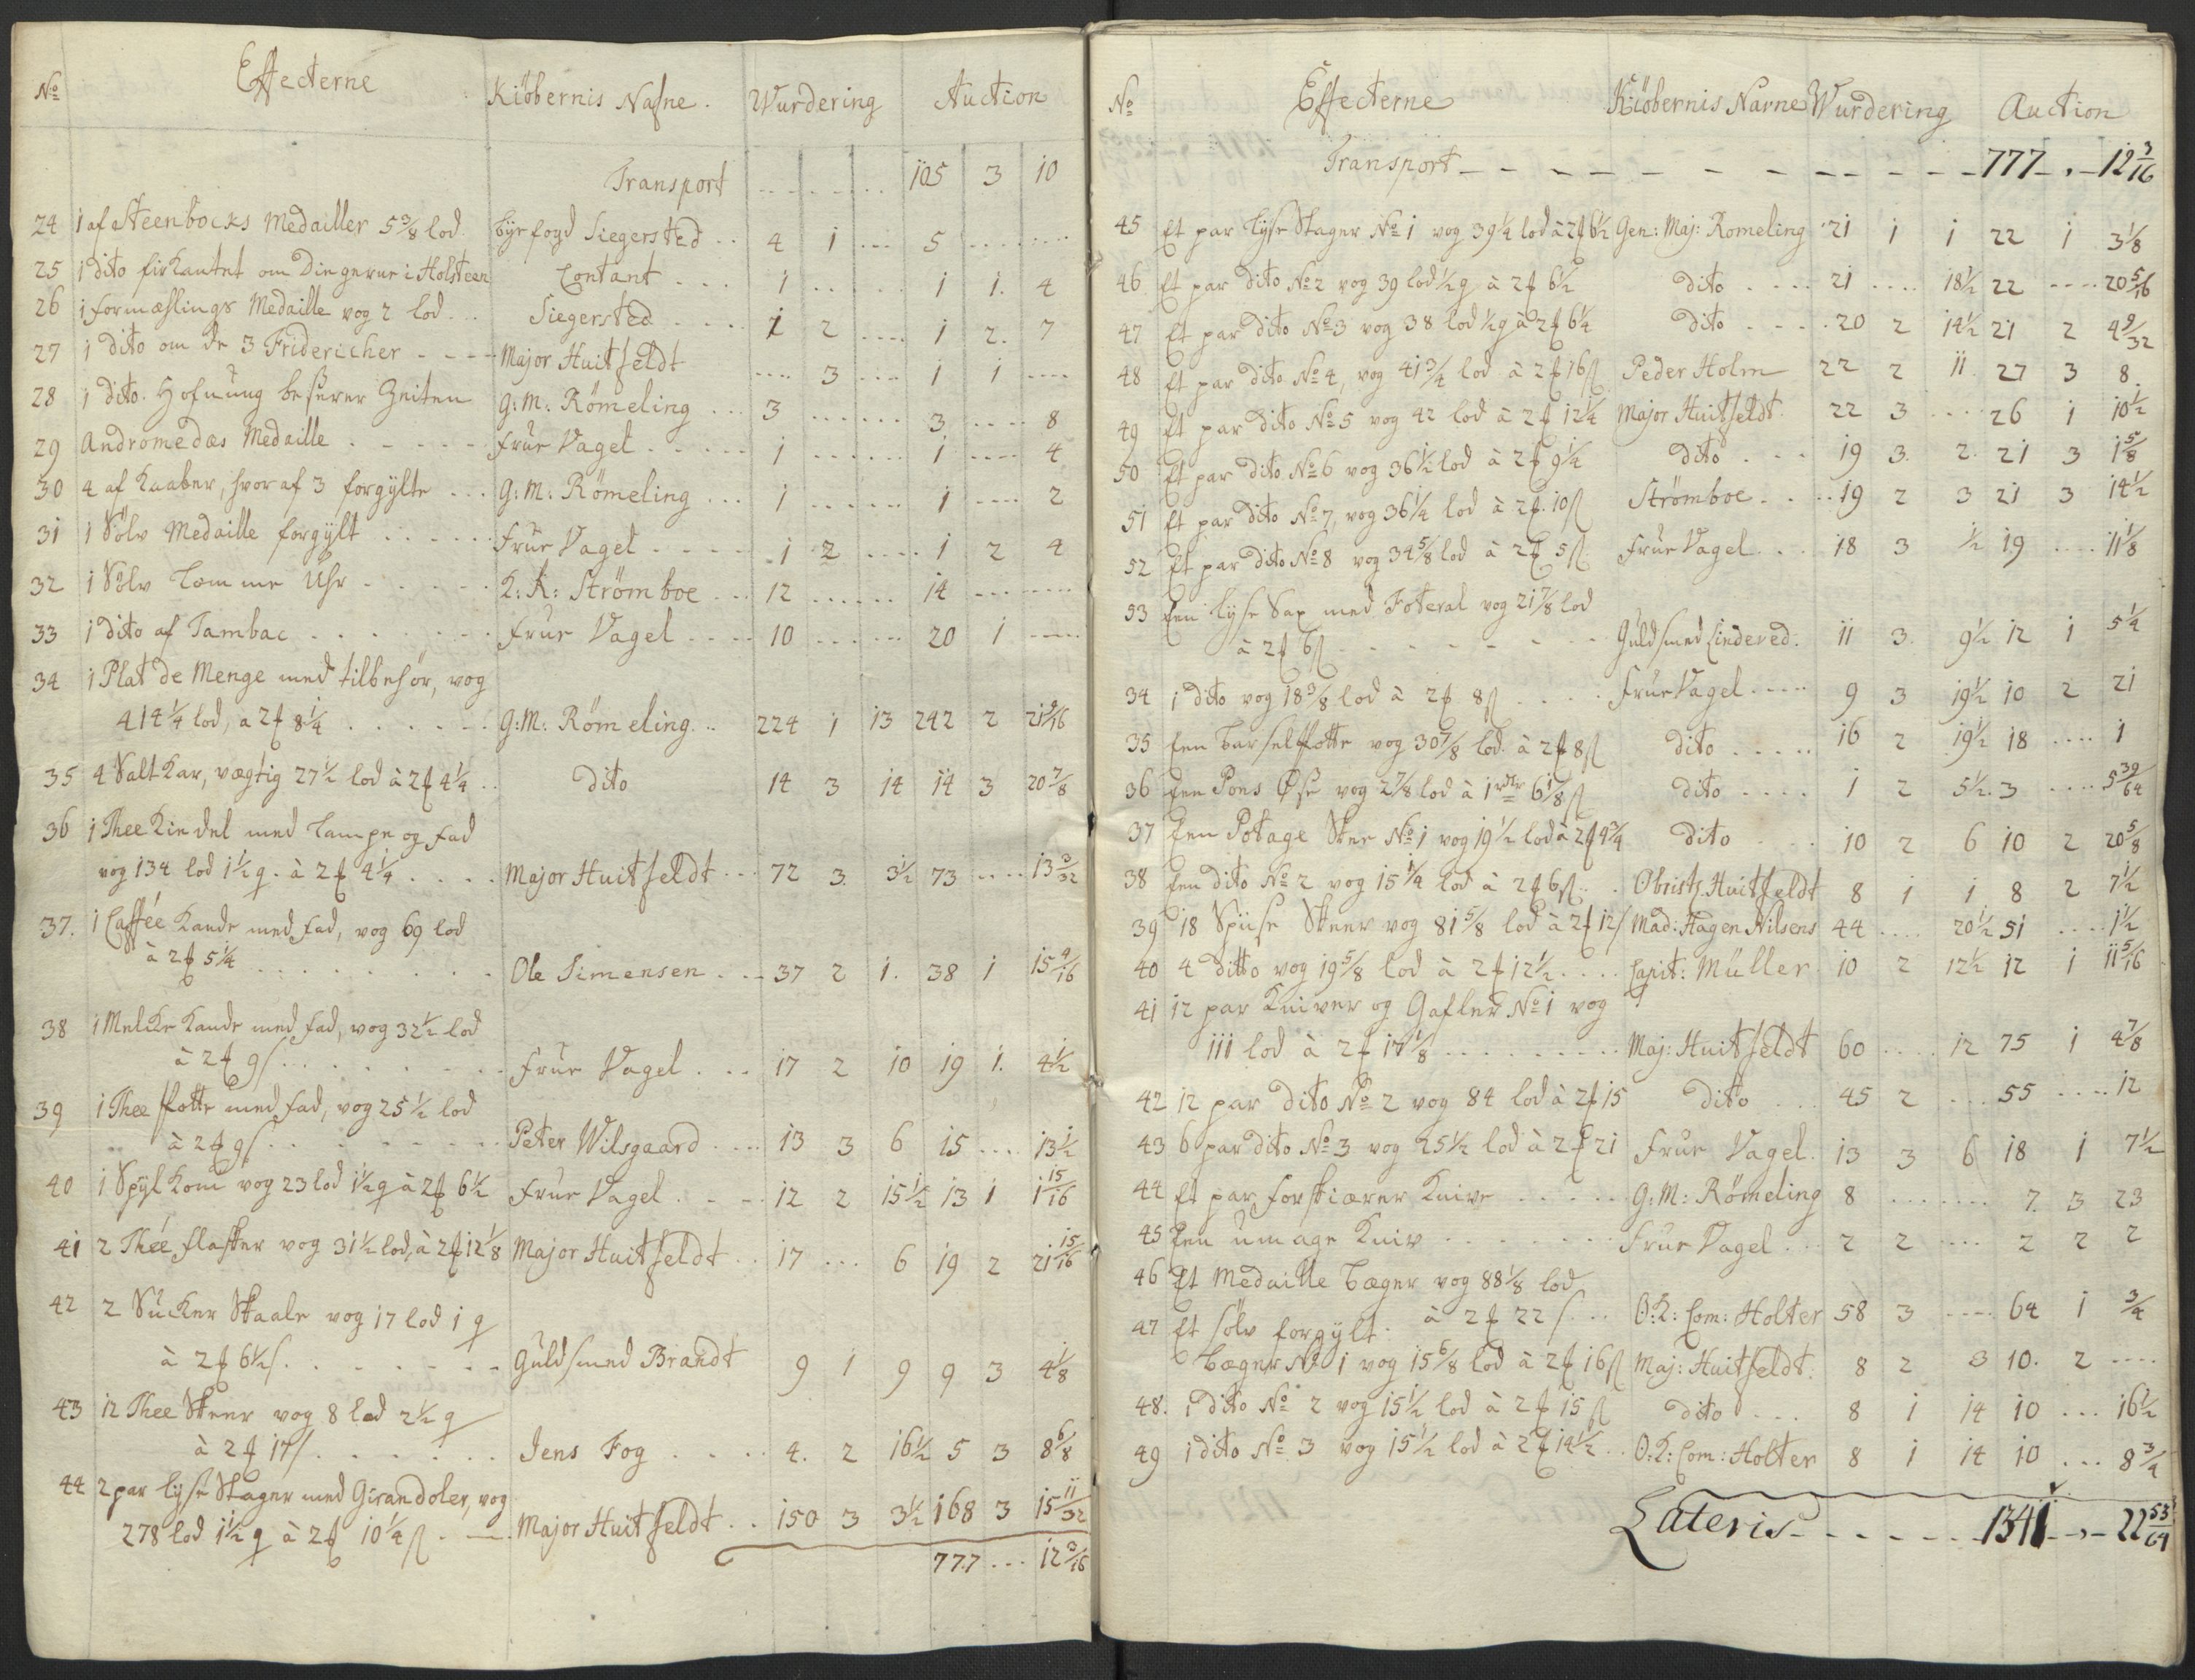 No Effecterne Kiöbernis Nafne. Wurdering Auction
Transport ... 105 3 10
24 1 af Steenbocks Medailler 5 3/8 lod. Byefogd Siegersted .. 4 1 ... 5 ......
25 1 dito firkantet om Diegerne i Holsteen Contant ... 1 ..... 1 1. 4
26 1 formæhlings Medaille vog 2 lod... Siegersted .... 1 2 .... 1 2. 7
27 1 dito om de 3 Fridericher ---- Major Huitfeldt .... 3 ... 1 1 ....
28 1 dito. Hofnung beserer Zeiten G: M: Römeling ... 3 ...... 3 .... 8
29 Andromedæs Medaille ..... Frue Vagel ..... 1 ...... 1 .... 4
30 4 af Kaaber, hvoraf 3 forgylte ... G: M: Römeling ... 1 ..... 1 .... 2
31 1 Sölv Medaille forgylt ..... Frue Vagel .... 1 2 .... 1 2 4
32 1 Sölv Lomme Uhr ..... K: Strömboe ... 12 ...... 14 ......
33 1 dito af Tambac ....... Frue Vagel .... 10 ...... 20 1 ....
34 1 Plat de Menge med tilbehör, vog
414 1/4 lod, a 2 ꝑ 8 1/4 ...... G: M: Römeling. .. 224 1 13 242 2 21 9/16
35 4 Saltkar, vægtig 27 1/2 lod à 2 ꝑ 4 1/4 .. dito 14 3 14 14 3 20 7/8
36 1 Thee Kiedel med Lampe og fad
vog 134 lod 1 1/2 q. à 2 ꝑ 4 1/4 .... Major Huitfeldt ... 72 3. 3 1/2 73 .... 13 3/32
37. 1 Caffée Kande med fad, vog 69 lod
à 2 ꝑ 5 1/4 ........ Ole Simensen ... 37 2 1. 38 1 15 9/16
38 1 Melke Kande med fad, vog 32 1/2 lod
à 2 ꝑ 9 ß ........ Frue Vagel ... 17 2 10 19 1. 4 1/2
39 1 Thee Potte med fad, vog 25 1/2 lod
à 2 ꝑ 9 ß ........ Peter Wilsgaard .... 13 3 6 15 .... 13 1/2
40 1 Spyl Kom vog 23 lod 1 1/2 q à 2 ꝑ 6 1/2 Frue Vagel .... 12 2 15 1/2 13 1 1 15/16
41 2 Thée flasker vog 31 1/2 lod, à 2 ꝑ 12 1/8 Major Huitfeldt .. 17 ... 6 19 2 21 15/16
42 2 Sucker Skaale vog 17 lod 1 q
à 2 ꝑ 6 1/2 ß. ....... Guldsmed Brandt 9 1 9 9 3 4 1/8
43 12 Thee Skeer vog 8 lod 2 1/2 q
à 2 ꝑ 17 ß ...... Jens Fog .... 4. 2 16 1/2 5 3 8 6/8
44 2 par Lyse Stager med Girandoler, vog
278 lod 1 1/2 q à 2 ꝑ 10 1/4 ß . — Major Huitfeldt .. 150 3 3 1/2 168 3 15 11/32
777 ... 12 3/16
No Effecterne Kiöbernis Navne Wurdering Auction
Transport ----------- 777 - , - 12 3/16
45 Et par Lyse Stager No 1 vog 39 1/4 lod à 2 ꝑ 6 1/2 Gen: Maj: Romeling 21 1 1 22 1 3 1/8
46 Et par dito No 2 vog 39 lod 1/2 q à 2 ꝑ 6 1/2 dito .... 21 .... 18 1/2 22 .... 20 5/16
47 Et par dito No 3 vog 38 lod 1/2 q à 2 ꝑ 6 1/4 dito .... 20 2 14 1/2 21 2 4 9/32
48 Et par dito No 4, vog 41 3/4 lod à 2 ꝑ 16 ß Peder Holm 22 2 11. 27 3 8.
49 Et par dito No 5 vog 42 lod à 2 ꝑ 12 1/4 Major Huitfeldt. 22 3 .... 26 1 10 1/2
50 Et par dito No 6 vog 36 1/2 lod à 2 ꝑ 9 1/4 dito ... 19 3. 2. 21 3 1 5/8
51 Et par dito No 7, vog 36 1/4 lod à 2 ꝑ. 10 ß Strömboe .... 19 2 3 21 3 14 1/2
52 Et par dito No 8 vog 34 5/8 lod à 2 ꝑ. 5 ß. Frue Vagel ... 18 3 1/2 19 .... 11 1/8
53 Een Lyse Sax med Foteral vog 21 7/8 lod
à 2 ꝑ 6 ß ------- Guldsmed Lindered. 11 3. 9 1/2 12 1 5 1/4
34 1 dito vog 18 3/8 lod à 2 ꝑ 8 ß .... Frue Vagel .... 9 3 19 1/2 10 2 21
35 Een Barselpotte vog 30 7/8 lod. à 2 ꝑ 8 ß dito ..... 16 2 19 1/2 18 .... 1
36 Een Pons Öse vog 2 7/8 lod à 1 rdlr 6 1/8 ß dito .... 1 2 5 1/2. 3 .... 5 39/64
37 Een Potage Skee No 1 vog 19 1/2 lod à 2 ꝑ 4 3/4 dito ... 10 2 6 10 2 20 5/8
38 Een dito No 2 vog 15 1/4 lod à 2 ꝑ 6 ß. .. Obristl. Huitfeldt 8 1 1 8 2 7 1/2
39 18 Spiise Skeer vog 81 5/8 lod à 2 ꝑ 12 ß Mad: Hagen Nilsens 44 .... 20 1/2 51 .... 1 1/2
40 4 ditto vog 19 5/8 lod à 2 ꝑ 12 1/2 .... Capit: Müller 10 2 12 1/2 12 1 11 5/16
41 12 par Kniver og Gafler No 1 vog
111 lod à 2 ꝑ 17 1/8 ......... Maj: Huitfeldt 60 .... 12 75 1 4 7/8
42 12 par dito No 2 vog 84 lod à 2 ꝑ 15 dito ... 45 2 ... 55 .... 12
43 6 par dito No 3 vog 25 1/2 lod à 2 ꝑ 21 Frue Vagel. 13 3 6 18 1 7 1/2
44 Et par forskiærer Knive ..... G: M: Römeling 8 ....... 7. 3 23
45 Een umage Kniv ....... Frue Vagel ... 2 2 .... 2 2 2
46 Et Medaille Bæger vog 88 1/8 lod
à 2 ꝑ 22 ß ... O: K: Com: Holter 58 3 .... 64 1 3/4
47 Et sölv forgylt.
Bæger No 1 vog 15 6/8 lod à 2 ꝑ 16 ß Maj: Huitfeldt. 8 2 3 10. 2 ....
48. 1 dito No 2 vog 15 1/2 lod à 2 ꝑ 15 ß dito ... 8 1 14 10 ... 16 1/2
49 1 dito No 3 vog 15 1/2 lod à 2 ꝑ 14 1/2 .. O: K: Com: Holter 8 1 14 10 ... 8 3/4
Lateris ------ 1341 - , - 22 53/64